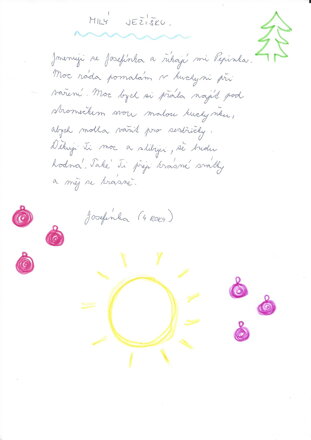 MILÝ JEŽÍŠKU.
Jmenuji se Josefínka a říkají mi Pepinka.
Moc ráda pomáhám v kuchyni při
vaření. Moc bych si přála najít pod
stromečkem svou malou kuchyňku,
abych mohla vařit pro sestřičky.
Děkuji Ti moc a slibuji, že budu
hodná. Také Ti přeji krásné svátky
a měj se krásně.
Josefínka (4 roky)